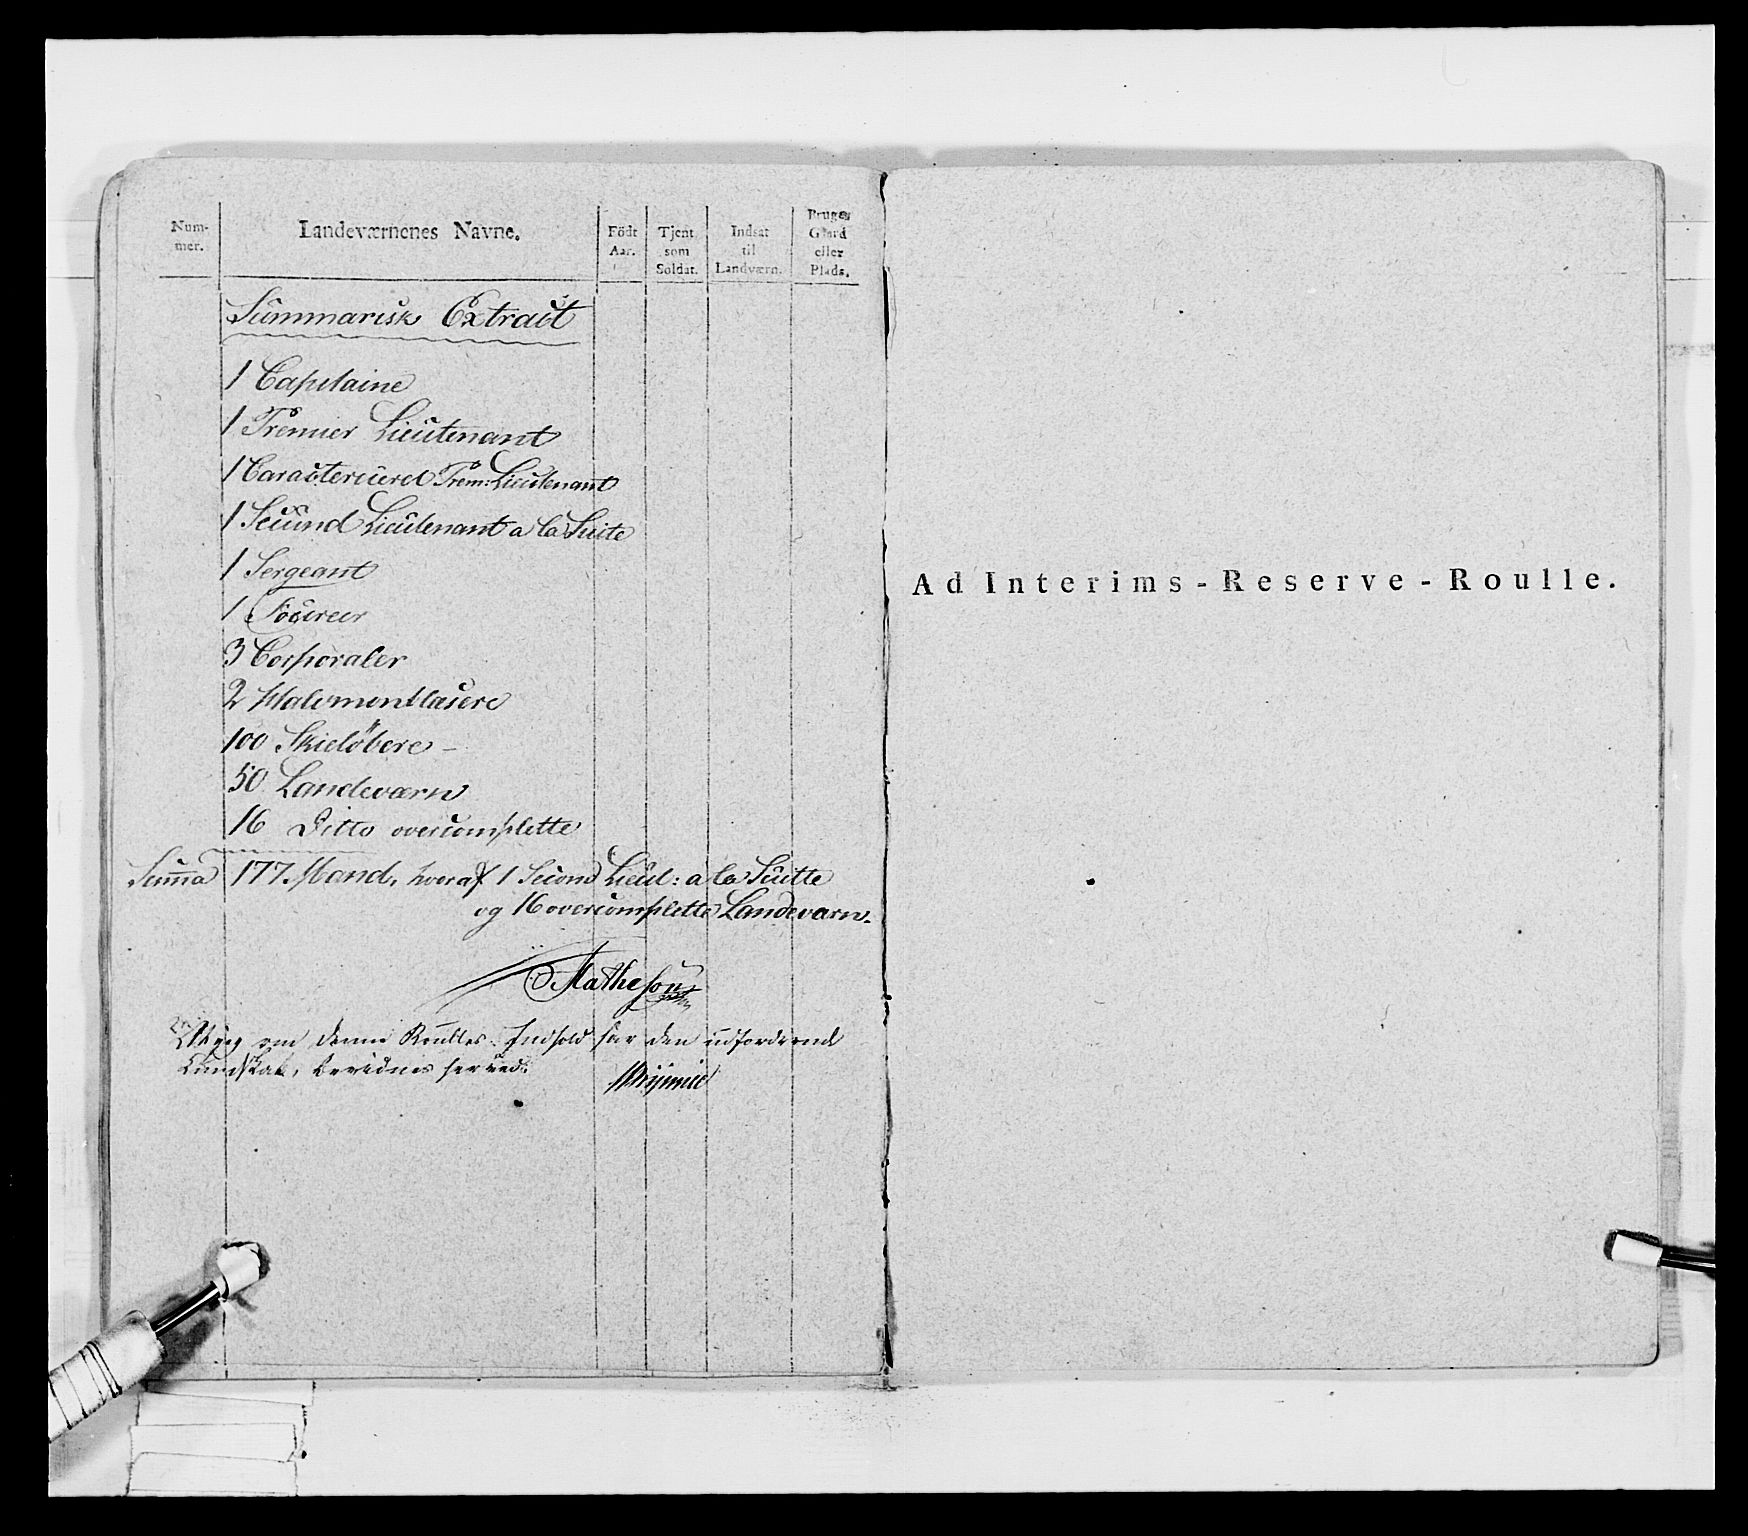 Num-
mer.
Landeværnenes Navne.
Födt
Aar.
Tjent
som
Soldat.
Indsat
til
Landværn.
Bruger
Gaard
eller
Plads.
Summarisk Extract
1 Capitaine
1 Premier Lieutenant
1 Caracteriseret Prem: Lieutenant
1 Secund Lieutenant a la Suite
1 Sergeant
1 Foureer
3 Corporaler
2 Halvmonblasere
100 Skielöbere
50 Landeværn
16 Ditto overcomplette
Summa 177 Mand, hvoraf 1 Second Lieut: a la Suitte
og 16 overcomplette Landeværn.
Matheson
om denne Roulles Indhold har den udfordrende
Kundskab, bevidnes herved.
Ad Interims-Reserve-Roulle.